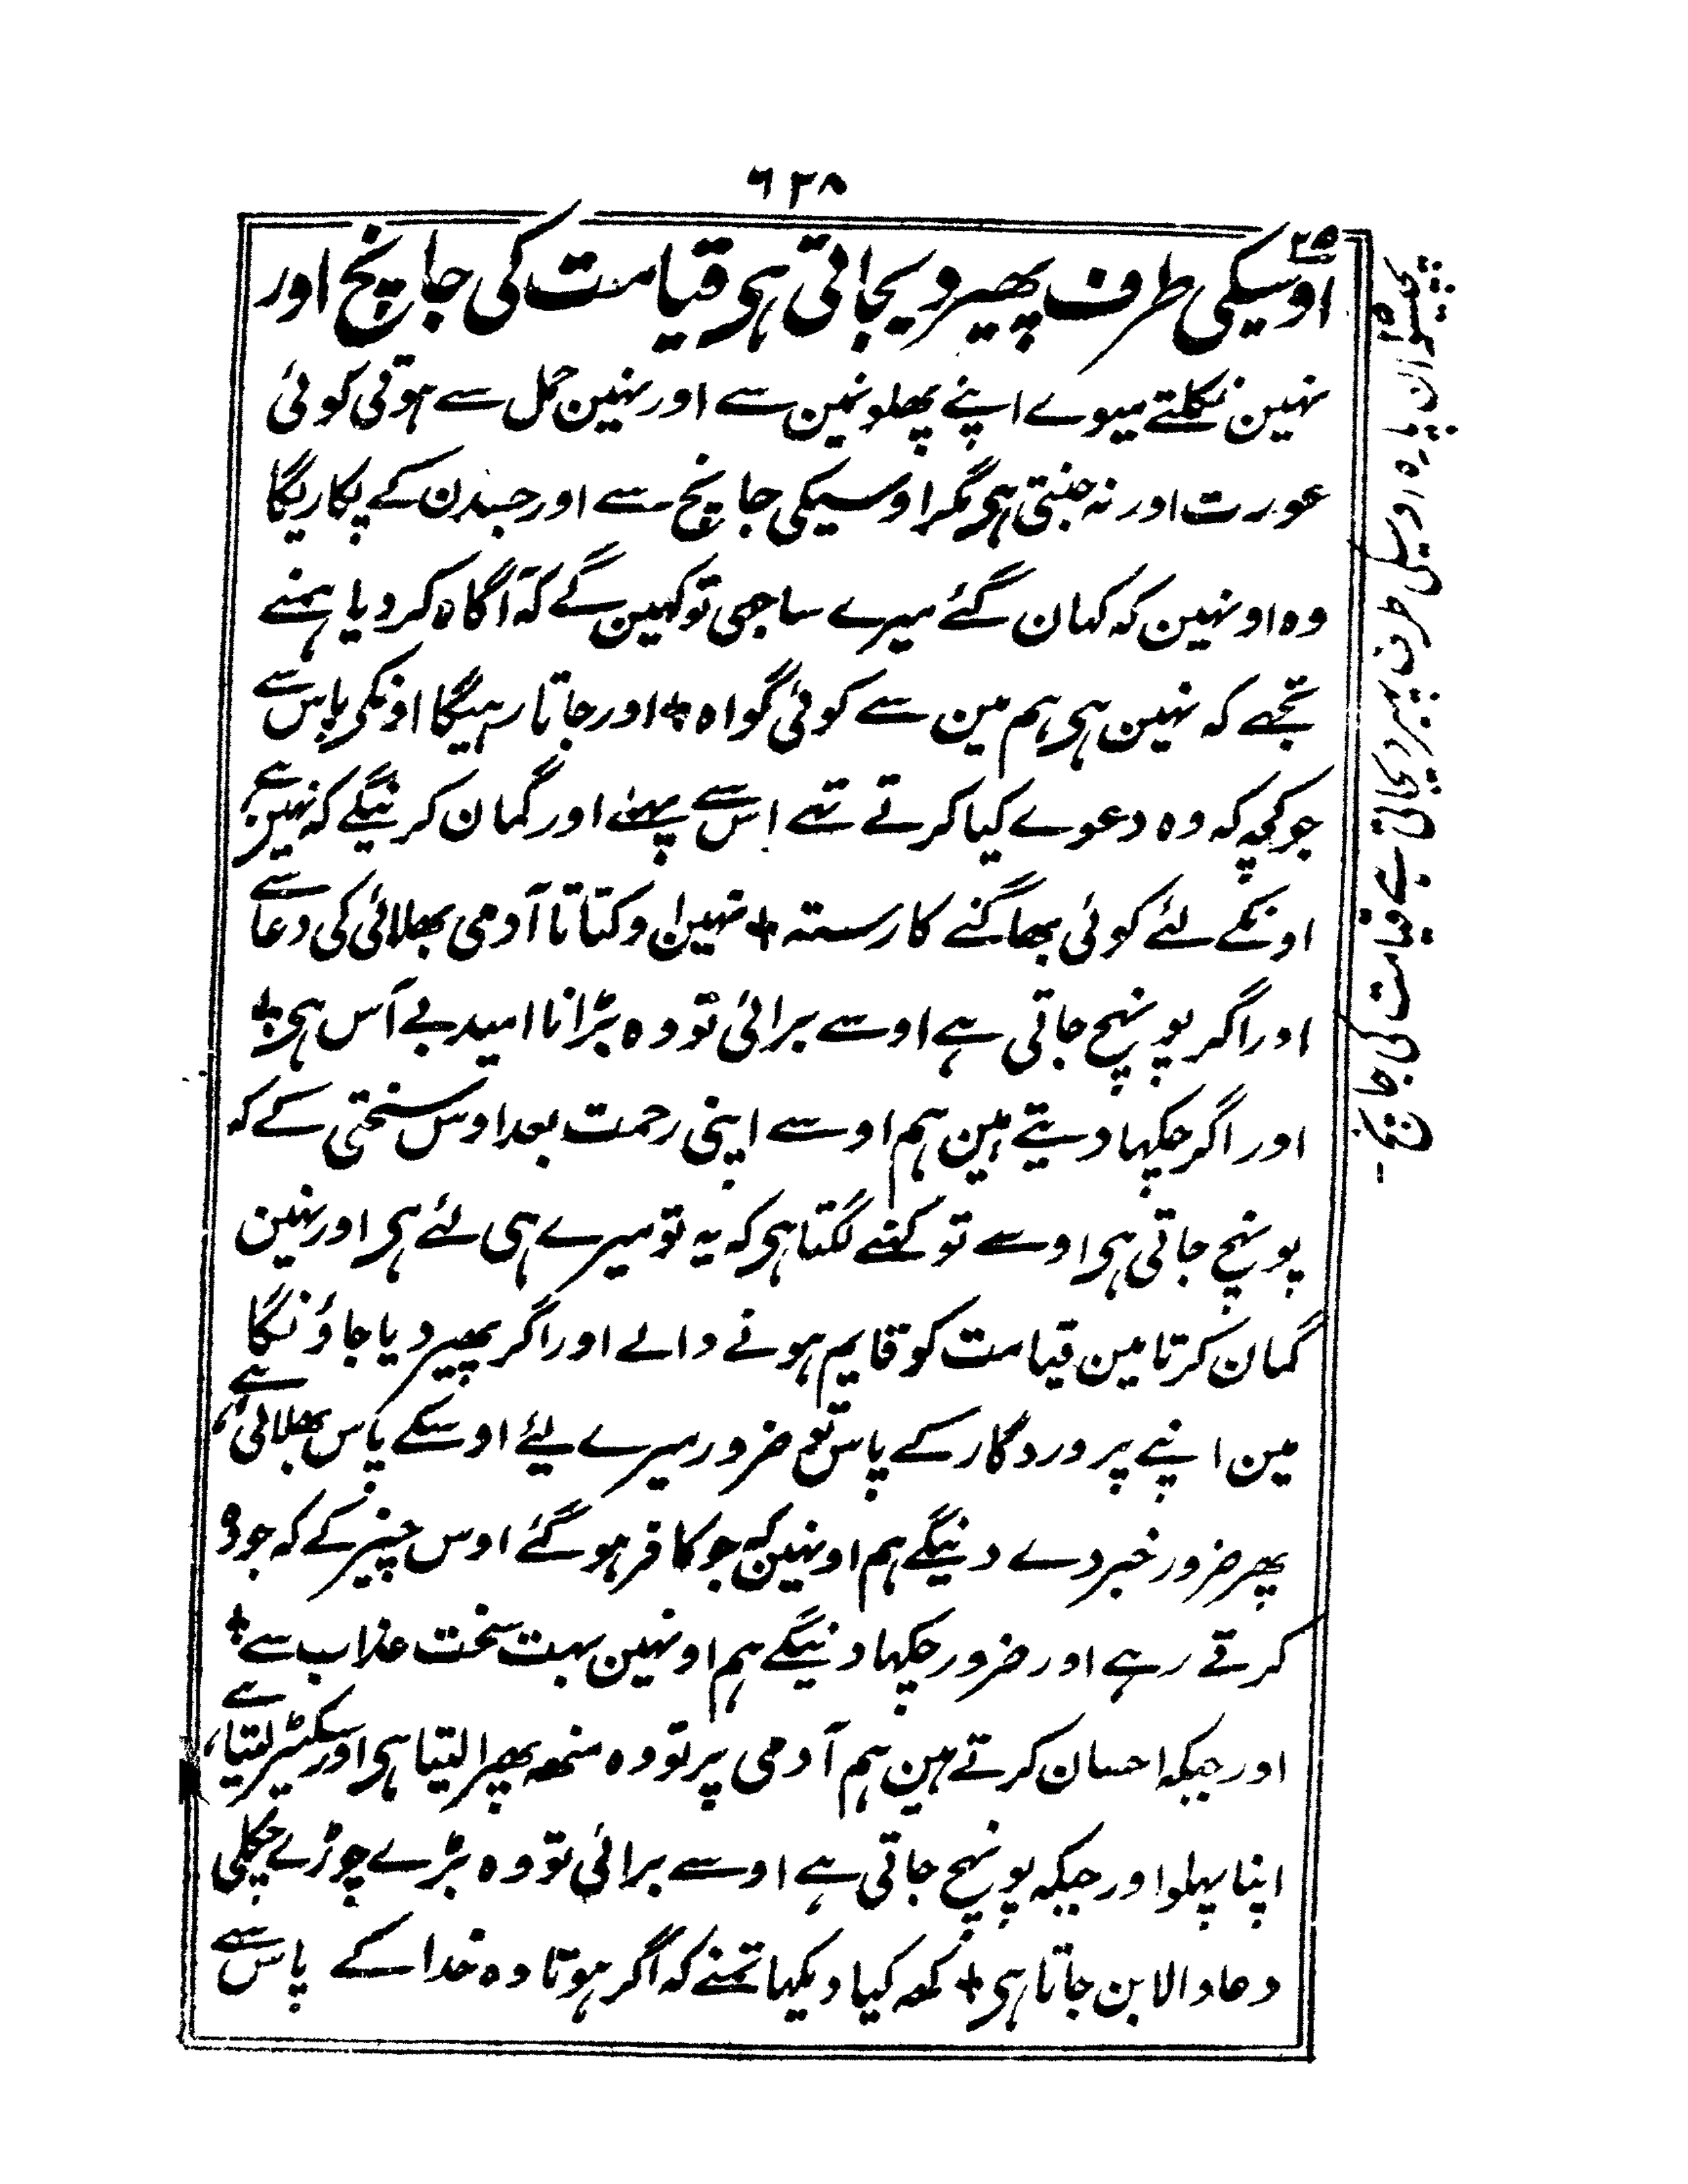 ٦٣٨
٢٥
اوسیکی طرف پھیر دیجاتی ہی قیامت کی جانچ اور
نہین نکلتے میوے اپنے پھلونمین سے اور نہین حمل سے ہوتی کوئی
عورت اور نہ جنتی ہی مگر اوسیکی جانچ سے اور جسدن کے پکاریگا
وہ اونہین کہ کہان گئے میرے ساجھی تو کہین گے کہ آگاہ کر دیا ہمنے
تجھے کہ نہین ہی ہم مین سے کوئی گواہ + اور جاتا رہیگا اونکی پاس سے
جو کچھ کہ وہ دعوے کیا کرتے تھے اس سے پہلے اور گمان کرینگے کہ نہین ہے
اونکے لئے کوئی بھاگنے کا رستہ + نہین اوکتاتا آدمی بھلائی کی دعا سے
اور اگر پونہچ جاتی ہے اوسے برائی تو وہ بڑا نا امید بے آس ہی +
اور اگر چکہا دیتے ہین ہم اوسے اپنی رحمت بعد اوس سختی کے کہ
پونہچ جاتی ہی اوسے تو کہنے لگتا ہی کہ یہ تو میرے ہی لئے ہی اور نہین
گمان کرتا مین قیامت کو قایم ہونے والے اور اگر پھیر دیا جاؤنگا
مین اپنے پروردگار کے پاس تو ضرور میرے لیئے اوسکے پاس بھلائی ہے
پھر ضرور خبر دے دینگے ہم اونہین کہ جو کافر ہو گئے اوس چیز کے کہ جو وہ
کرتے رہے اور ضرور چکہا دینگے ہم اونہین بہت سخت عذاب سے +
اور جبکہ احسان کرتے ہین ہم آدمی پر تو وہ منھ پھرا لیتا ہی اور سکیڑ لیتا ہے
اپنا پہلو اور جبکہ پونہچ جاتی ہے اوسے برائی تو وہ بڑے چوڑے چکلی
دعا والا بن جاتا ہی + کھہ کیا دیکہا تمنے کہ اگر ہوتا وہ خدا کے پاس سے
پچیسوان پارہ اوسیکی طرف پھیر دیجاتی ہے قیامت کی جانچ -